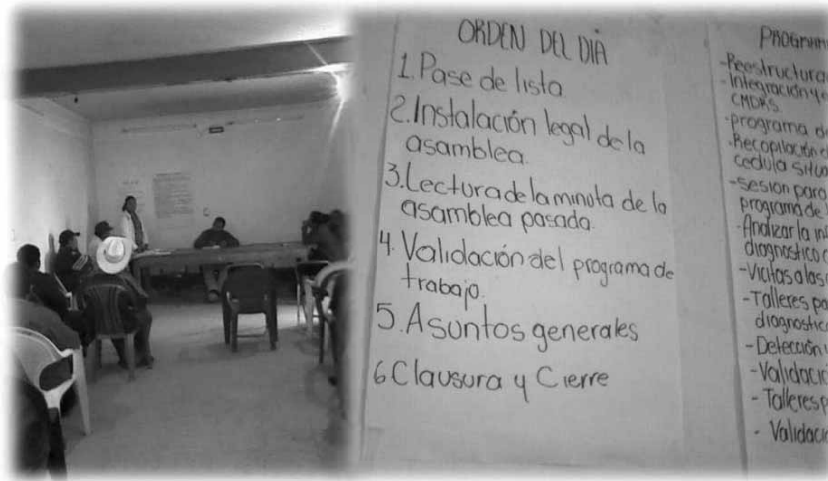 ORDEN DEL DIÁ
1. Pase de lista
2. Instalación legal de la
asamblea.
3. Lectura de la minuta de la
asamblea pasada.
4. Validación del programa de
trabajo.
5. Asuntos generales
6 Clausura y Cierre
-Integración y
CMDRS
-programa
-Recopilación
cedula
-sesion para
programa de
-Analizar la
diagnostico
-Vicitas a las
-Talleres
diagnostico
-Detección
- Talleres